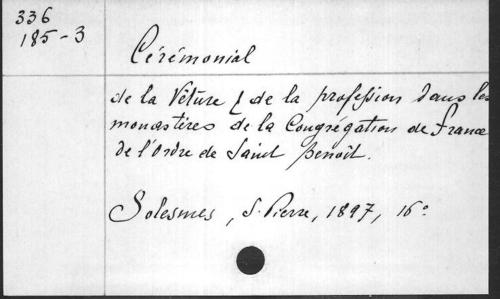 336
185-3
Cérémonial
de la Vêture & de la profession dans les
monastères de la Congrégation de France
de l'Ordre de Saint Benoît.
Solesmes, S. Pierre, 1897, 16°